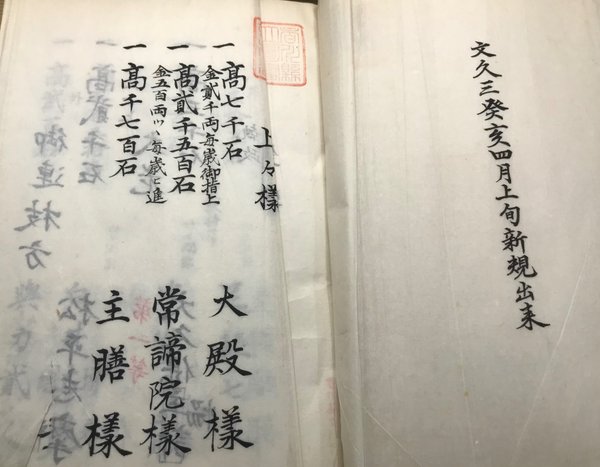 文久三癸亥四月上旬新規出来
上々様
一高七千石
金貳千両毎歳御指上
大殿様
一高貳千五百石
金五百両ツヽ毎歳ヒ進
常諦院様
一高千七百石
主膳様